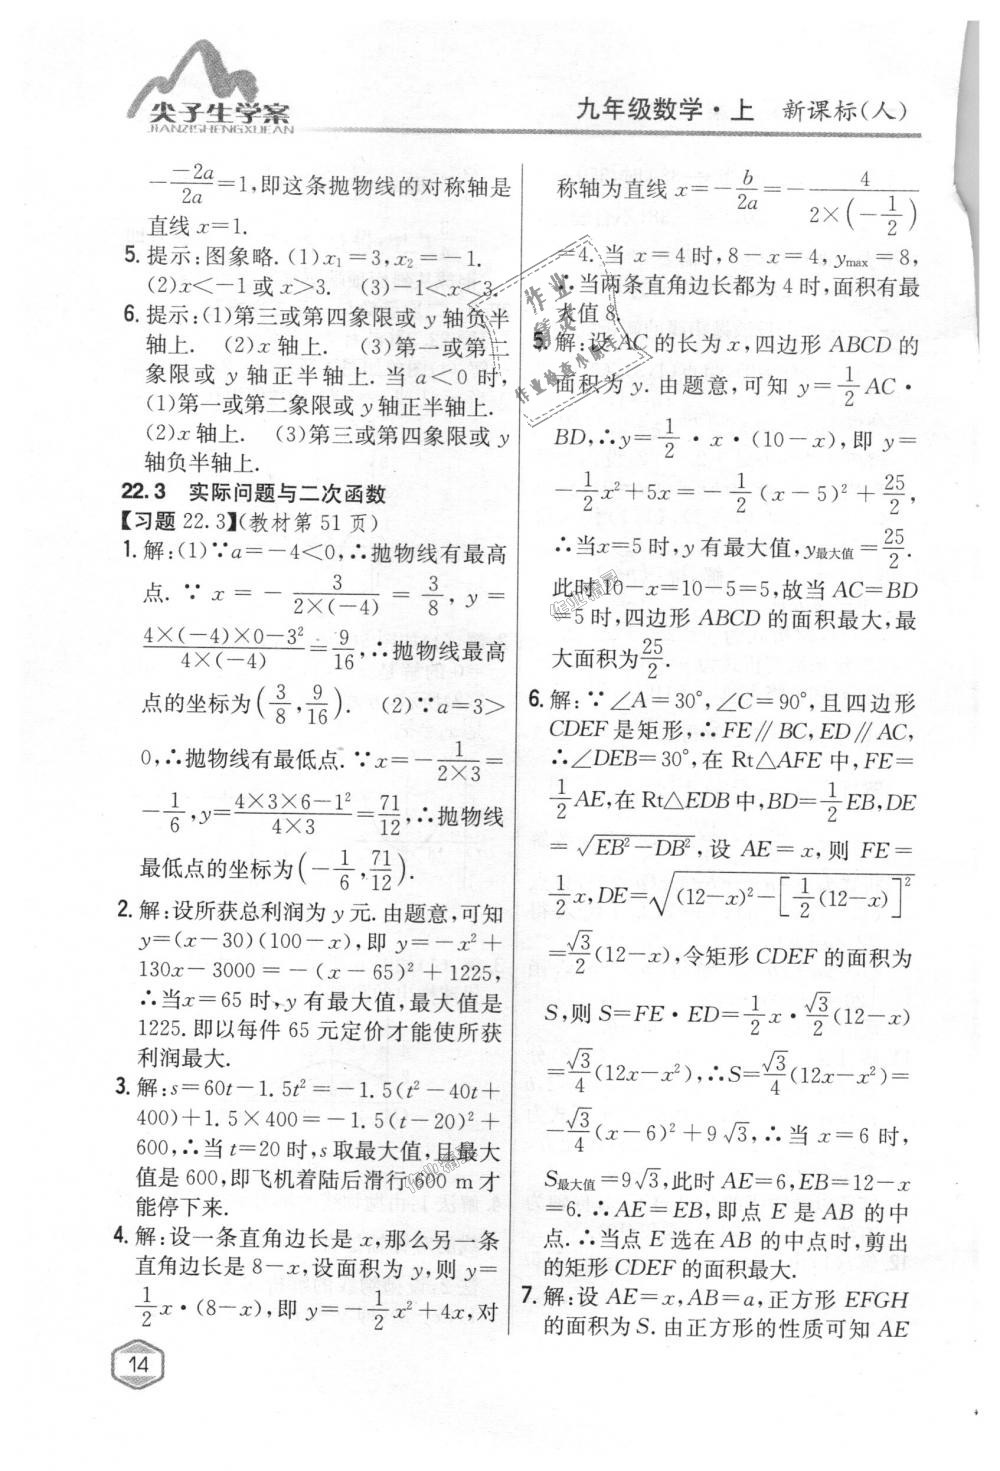 尖子生学案
JIANZISHENGXUEAN
九年级数学·上 新课标(人)
-\frac{-2a}{2a}=1,即这条抛物线的对称轴是
直线 x=1.
5. 提示:图象略. (1)x₁=3,x₂=-1.
(2)x<-1或x>3. (3)-1<x<3.
6. 提示:(1)第三或第四象限或 y 轴负半
轴上. (2)x 轴上. (3)第一或第二
象限或 y 轴正半轴上. 当 a<0 时,
(1)第一或第二象限或y轴正半轴上.
(2)x轴上. (3)第三或第四象限或y
轴负半轴上.
22.3 实际问题与二次函数
【习题 22.3】(教材第 51 页)
1. 解:(1)∵a=-4<0,∴抛物线有最高
点. ∵ x = -\frac{3}{2×(-4)} = \frac{3}{8}, y =
\frac{4×(-4)×0-3²}{4×(-4)}=\frac{9}{16},∴抛物线最高
点的坐标为(\frac{3}{8},\frac{9}{16}). (2)∵a=3>
0,∴抛物线有最低点. ∵x=-\frac{1}{2×3}=
-\frac{1}{6},y=\frac{4×3×6-1²}{4×3}=\frac{71}{12},∴抛物线
最低点的坐标为(-\frac{1}{6},\frac{71}{12}).
2. 解:设所获总利润为 y 元. 由题意,可知
y=(x-30)(100-x),即 y=-x²+
130x-3000=-(x-65)²+1225,
∴当x=65 时,y 有最大值,最大值是
1225. 即以每件 65 元定价才能使所获
利润最大.
3. 解:s=60t-1.5t²=-1.5(t²-40t+
400)+1.5×400=-1.5(t-20)²+
600,∴当 t=20 时,s 取最大值,且最大
值是 600,即飞机着陆后滑行 600 m 才
能停下来.
4. 解:设一条直角边长是 x,那么另一条
直角边长是 8-x,设面积为 y,则 y=
\frac{1}{2}x·(8-x),即 y=-\frac{1}{2}x²+4x,对
14
称轴为直线 x=-\frac{b}{2a}=-\frac{4}{2×(-\frac{1}{2})}
=4. 当 x=4 时,8-x=4, y_{max}=8,
∴当两条直角边长都为 4 时,面积有最
大值 8.
5. 解:设 AC 的长为 x,四边形 ABCD 的
面积为 y. 由题意,可知 y=\frac{1}{2}AC·
BD,∴y=\frac{1}{2}·x·(10-x),即 y=
-\frac{1}{2}x²+5x=-\frac{1}{2}(x-5)²+\frac{25}{2},
∴当x=5 时,y 有最大值,y_{最大值}=\frac{25}{2}.
此时 10-x=10-5=5,故当 AC=BD
=5 时,四边形 ABCD 的面积最大,最
大面积为\frac{25}{2}.
6. 解:∵∠A=30°,∠C=90°,且四边形
CDEF是矩形,∴FE∥BC,ED∥AC,
∴∠DEB=30°,在 Rt△AFE 中,FE=
\frac{1}{2}AE,在 Rt△EDB 中,BD=\frac{1}{2}EB,DE
=\sqrt{EB²-DB²},设 AE=x,则 FE=
\frac{1}{2}x,DE=\sqrt{(12-x)²-[\frac{1}{2}(12-x)]²}
=\frac{\sqrt{3}}{2}(12-x),令矩形 CDEF 的面积为
S,则 S=FE·ED=\frac{1}{2}x·\frac{\sqrt{3}}{2}(12-x)
=\frac{\sqrt{3}}{4}(12x-x²),∴S=\frac{\sqrt{3}}{4}(12x-x²)=
-\frac{\sqrt{3}}{4}(x-6)²+9\sqrt{3},∴当 x=6 时,
S_{最大值}=9\sqrt{3},此时 AE=6,EB=12-x
=6. ∴AE=EB,即点 E 是 AB 的中
点. ∴当点 E 选在 AB 的中点时,剪出
的矩形 CDEF 的面积最大.
7. 解:设 AE=x,AB=a,正方形 EFGH
的面积为 S. 由正方形的性质可知 AE